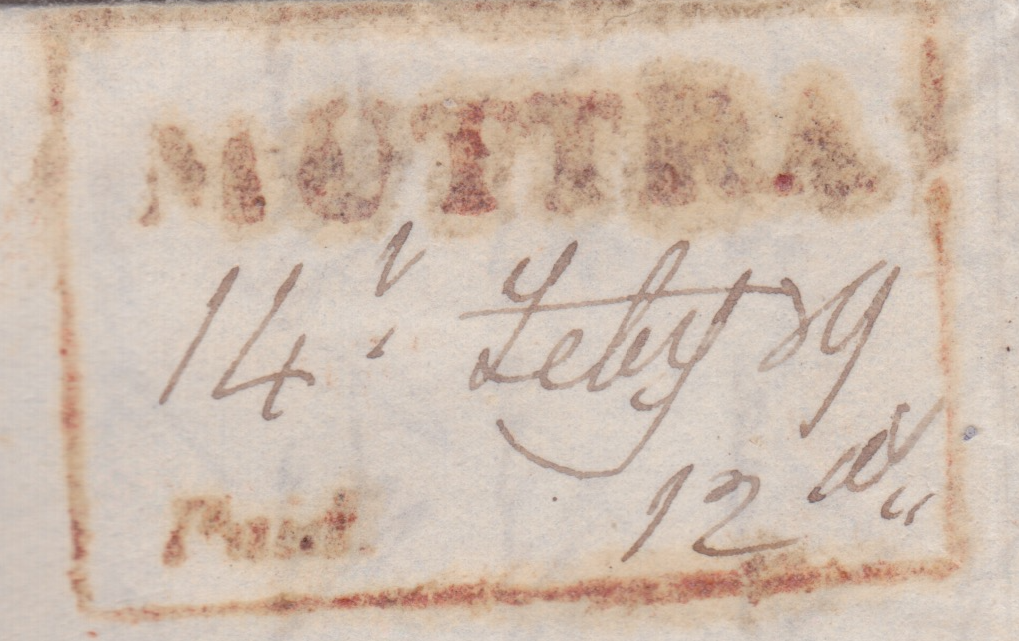 MUTTRA
14 Feby 39
Paid. 12